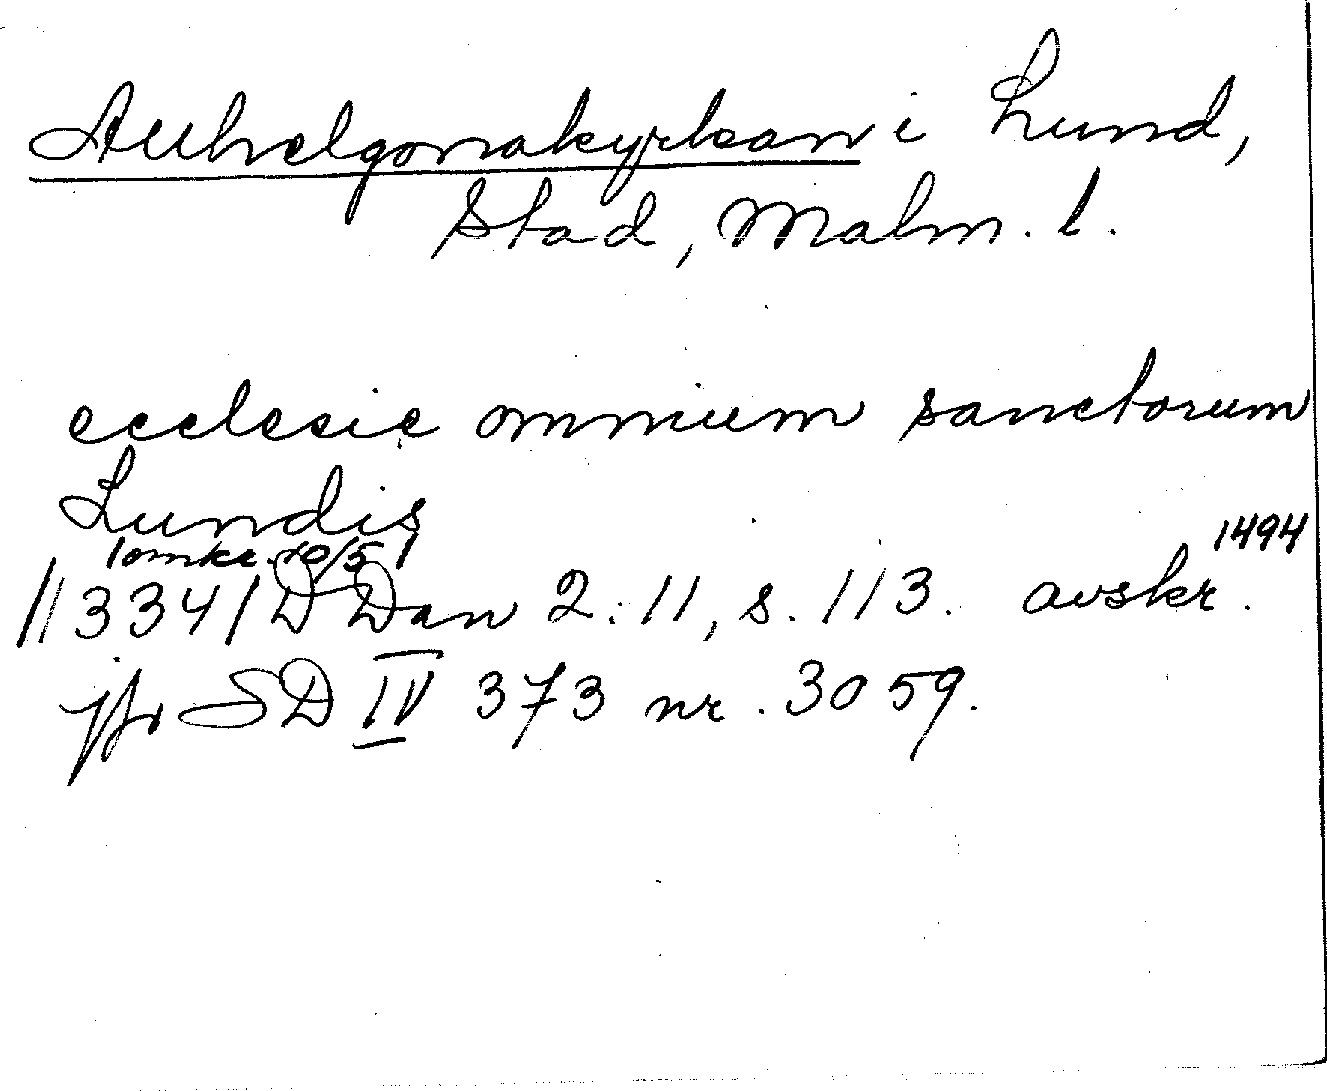 Allhelgonakyrkan i Lund,
Stad, Malm. l.
ecclesie omnium sanctorum
Lundis
(omkr. 10/5)
1494
/1334/ DDan 2:11, s. 113. avskr.
jfr SD IV 373 nr. 3059.